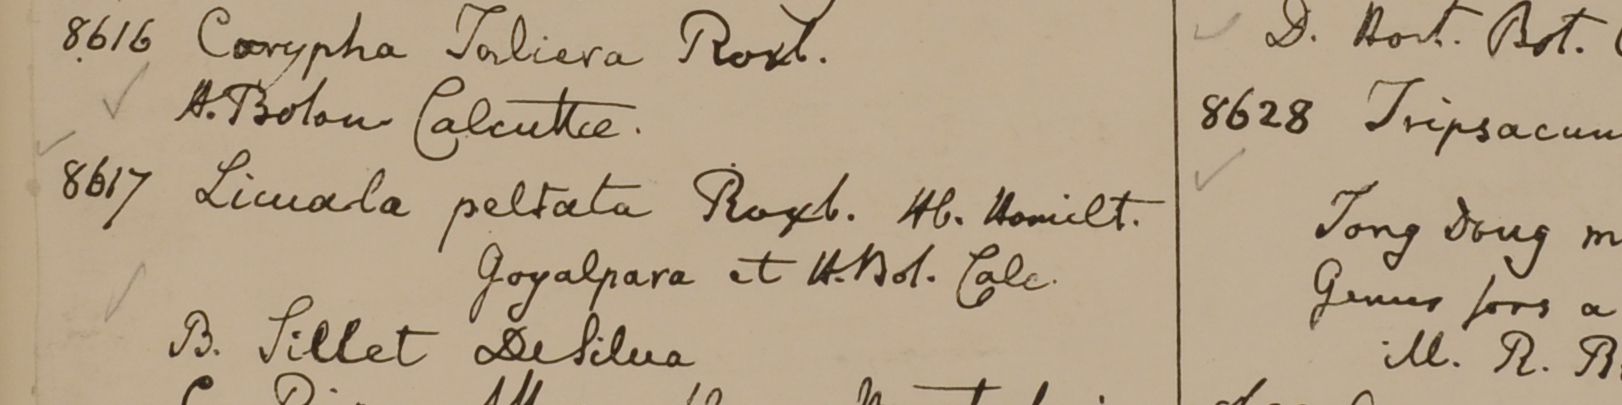 8616 Corypha Taliera Roxb.
H. Bolon Calcuttae.
8617 Licuala peltata Roxb. Hb. Hamilt.
Goyalpara et H. Bol. Calc.
B. Sillet DeSilva
D. Hort. Bot.
8628 Tripsacum
Tong Doug m
Genus fors a
M. R. B.